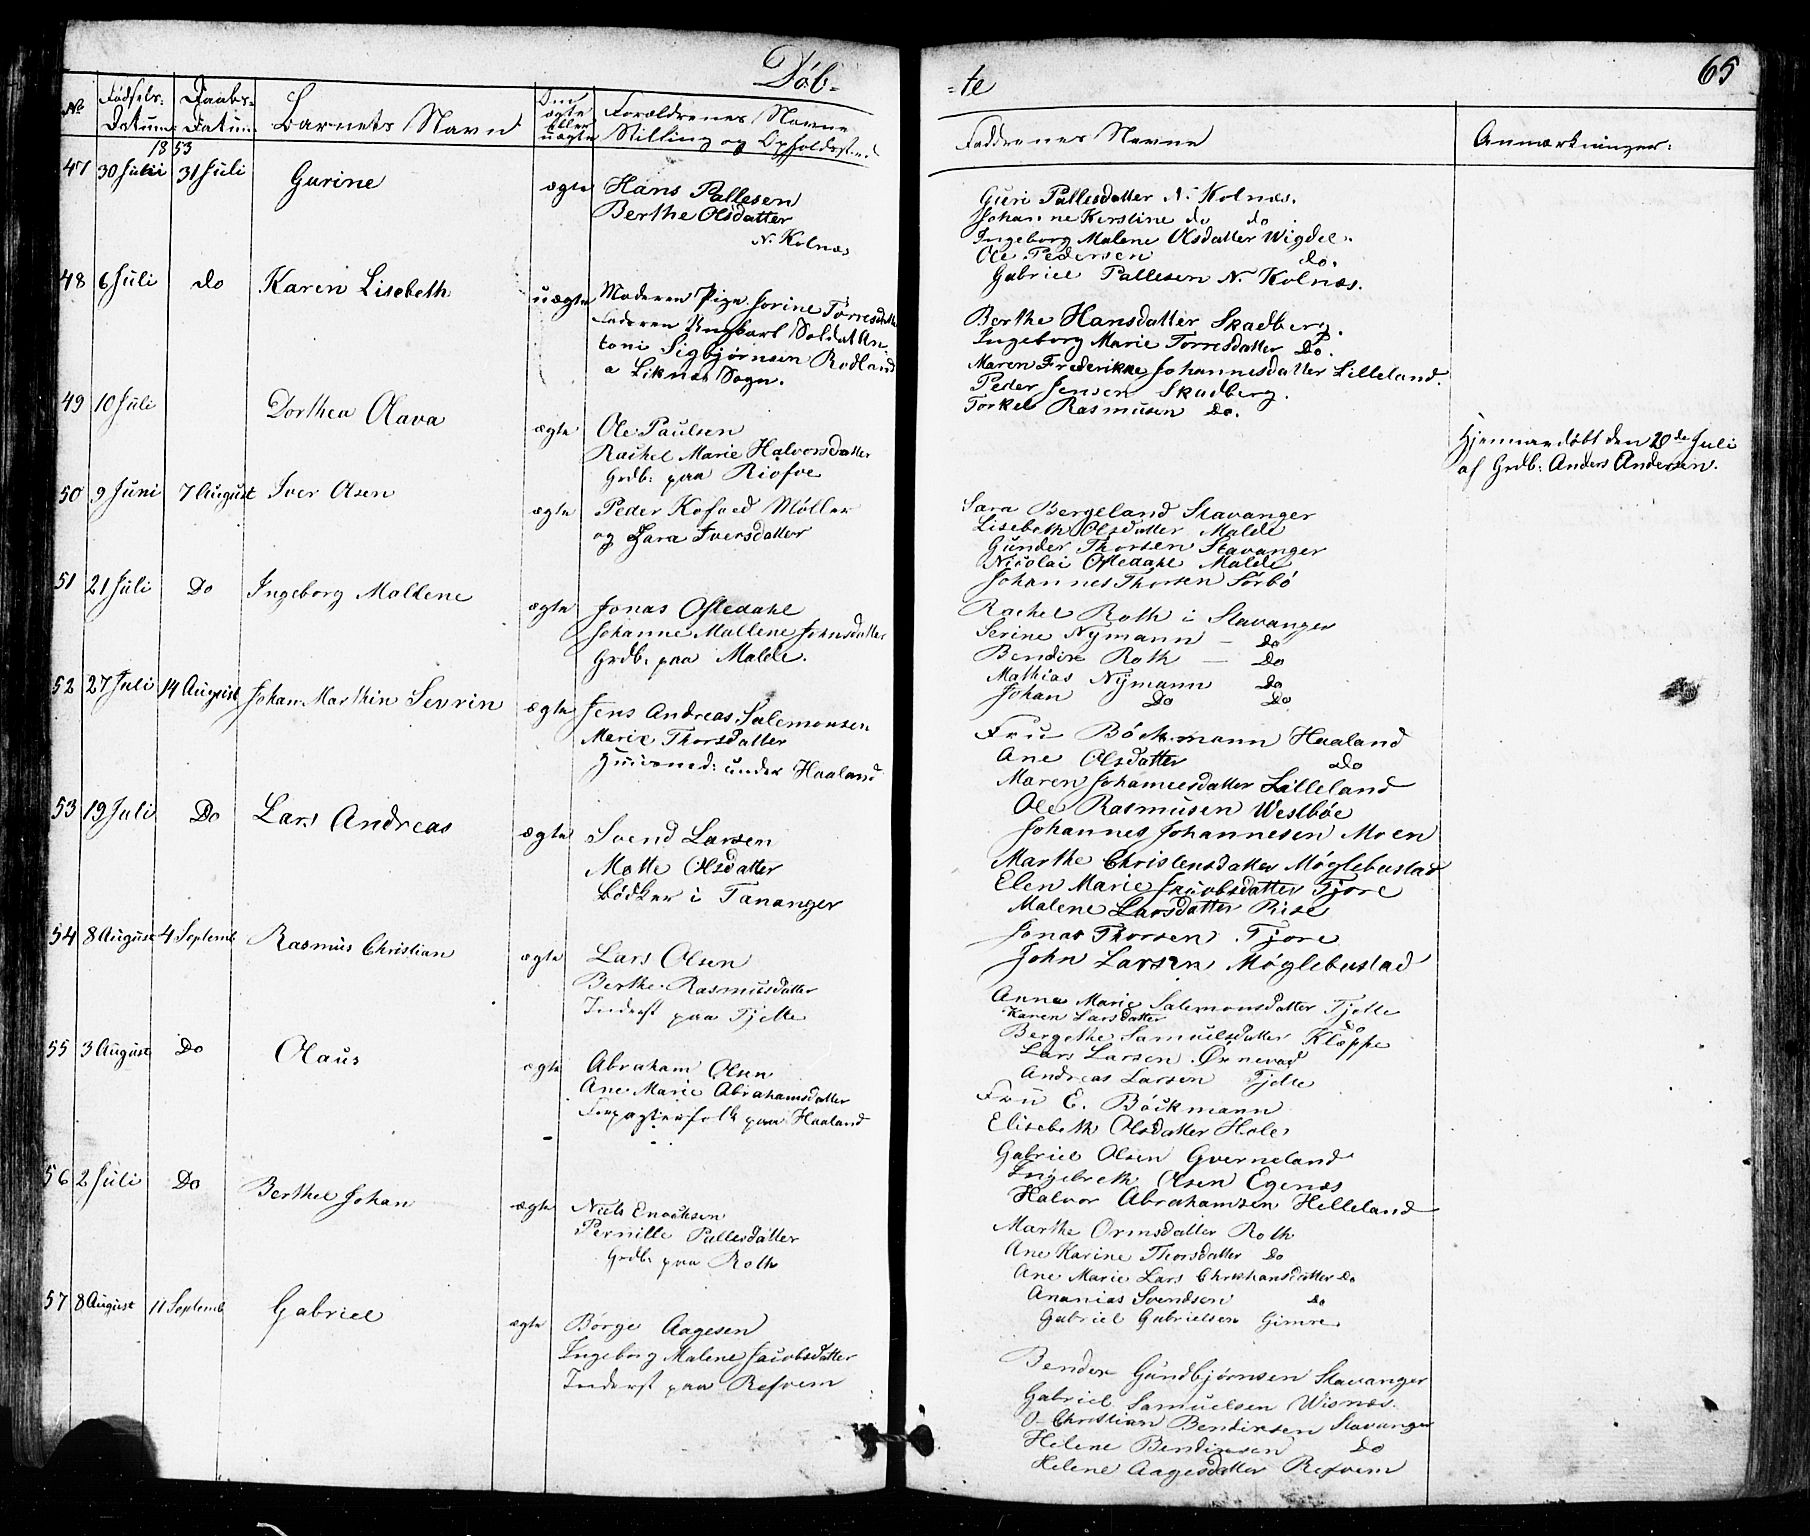 Döb-
-te
65
No
Födsels-
Datum
Daabs-
Datum
Barnets Navn
Om
ægte
eller
uægte
Forældrenes Navne
Stilling og Opholdssted
Faddrenes Navne
Anmærkninger:
1853
47 30 Juni 31 Juli Gurine ægte Hans Pallesen
Berthe Olsdatter
N. Kolnæs
Guri Pallesdatter N. Kolnæs.
Johanne Kirstine do do
Ingeborg Malene Olsdatter Wigdel.
Ole Pedersen do.
Gabriel Pallesen N. Kolnæs.
48 6 Juli do Karen Lisebeth uægte Moderen Pige Jorine Torresdatter
Faderen Ungkarl Soldat An
toni Sigbjörnsen Rodland
a Liknes Sogn.
Berthe Hansdatter Skadberg.
Ingeborg Marie Torresdatter Do.
Maren Frederikke Johannesdatter Lilleland.
Peder Jensen Skadberg.
Torkel Rasmusen Do.
49 10 Juli Dorthea Olava ægte Ole Paulsen
Rachel Marie Halvorsdatter
Grdb: paa Riofve
Hjemmedöbt den 20de Juli
af Grdb: Anders Andersen.
50 9 Juni 7 August Iver Olsen ægte Peder Kofoed Möller
og Sara Iversdatter
Sara Bergeland Stavanger
Lisebeth Olsdatter Malde
Gunder Thorsen Stavanger
Nicolai Oftedahl Malde
Johannes Thorsen Sörbö
51 21 Juli Do Ingeborg Mallene ægte Jonas Oftedahl
Johanne Mallene Johnsdatter
Grdb. paa Malde.
Rachel Roth i Stavanger
Serine Nymann — Do
Bendix Roth — Do
Mathias Nymann Do
Johan Do Do
52 27 Juli 14 August Johan Marthin Sevrin ægte Jens Andreas Salemonsen
Marie Thorsdatter
Huusmd: under Haaland
Fru Böckmann Haaland
Ane Olsdatter Do
Maren Johannesdatter Lilleland
Ole Rasmusen Westböe
Johannes Johannesen Moen
53 19 Juli Do Lars Andreas ægte Svend Larsen
Mette Olsdatter
Bödker i Tananger
Marthe Christensdatter Möglebustad
Elen Marie Jacobsdatter Tjore
Malene Larsdatter Rise
Jonas Thorsen Tjore
John Larsen Möglebustad
54 8 August 4 Septemb Rasmus Christian ægte Lars Olsen
Berthe Rasmusdatter
Inderst paa Tjelte
Anna Marie Salemonsdatter Tjelte
Karen Larsdatter Do
Bergethe Samuelsdatter Kleppe
Lars Larsen Örnevad
Andreas Larsen Tjelte
55 3 August Do Olaus ægte Abraham Olsen
Ane Marie Abrahamsdatter
Forpagterfolk paa Haaland
Fru E. Böckmann
Elisebeth Olsdatter Hole
Gabriel Olsen Gverneland
Ingebreth Olsen Egenæs
Halvor Abrahamsen Helleland
56 2 Juli Do Berthel Johan ægte Niels Enochsen
Pernille Pallesdatter
Grdb. paa Roth
Marthe Ormsdatter Roth
Ane Karine Thorsdatter Do
Ane Marie Lars Chrishansdatter Do
Ananias Svendsen Do
Gabriel Gabrielsen Gimre
57 8 August 11 Septemb Gabriel ægte Börge Aagesen
Ingeborg Malene Jacobsdatter
Inderst paa Refvem
Bendix Gundbjörnsen Stavanger
Gabriel Samuelsen Wisnæs.
O. Christian Bendixsen Stavanger
Helene Bendixsen Do
Helene Aagesdatter Refvem